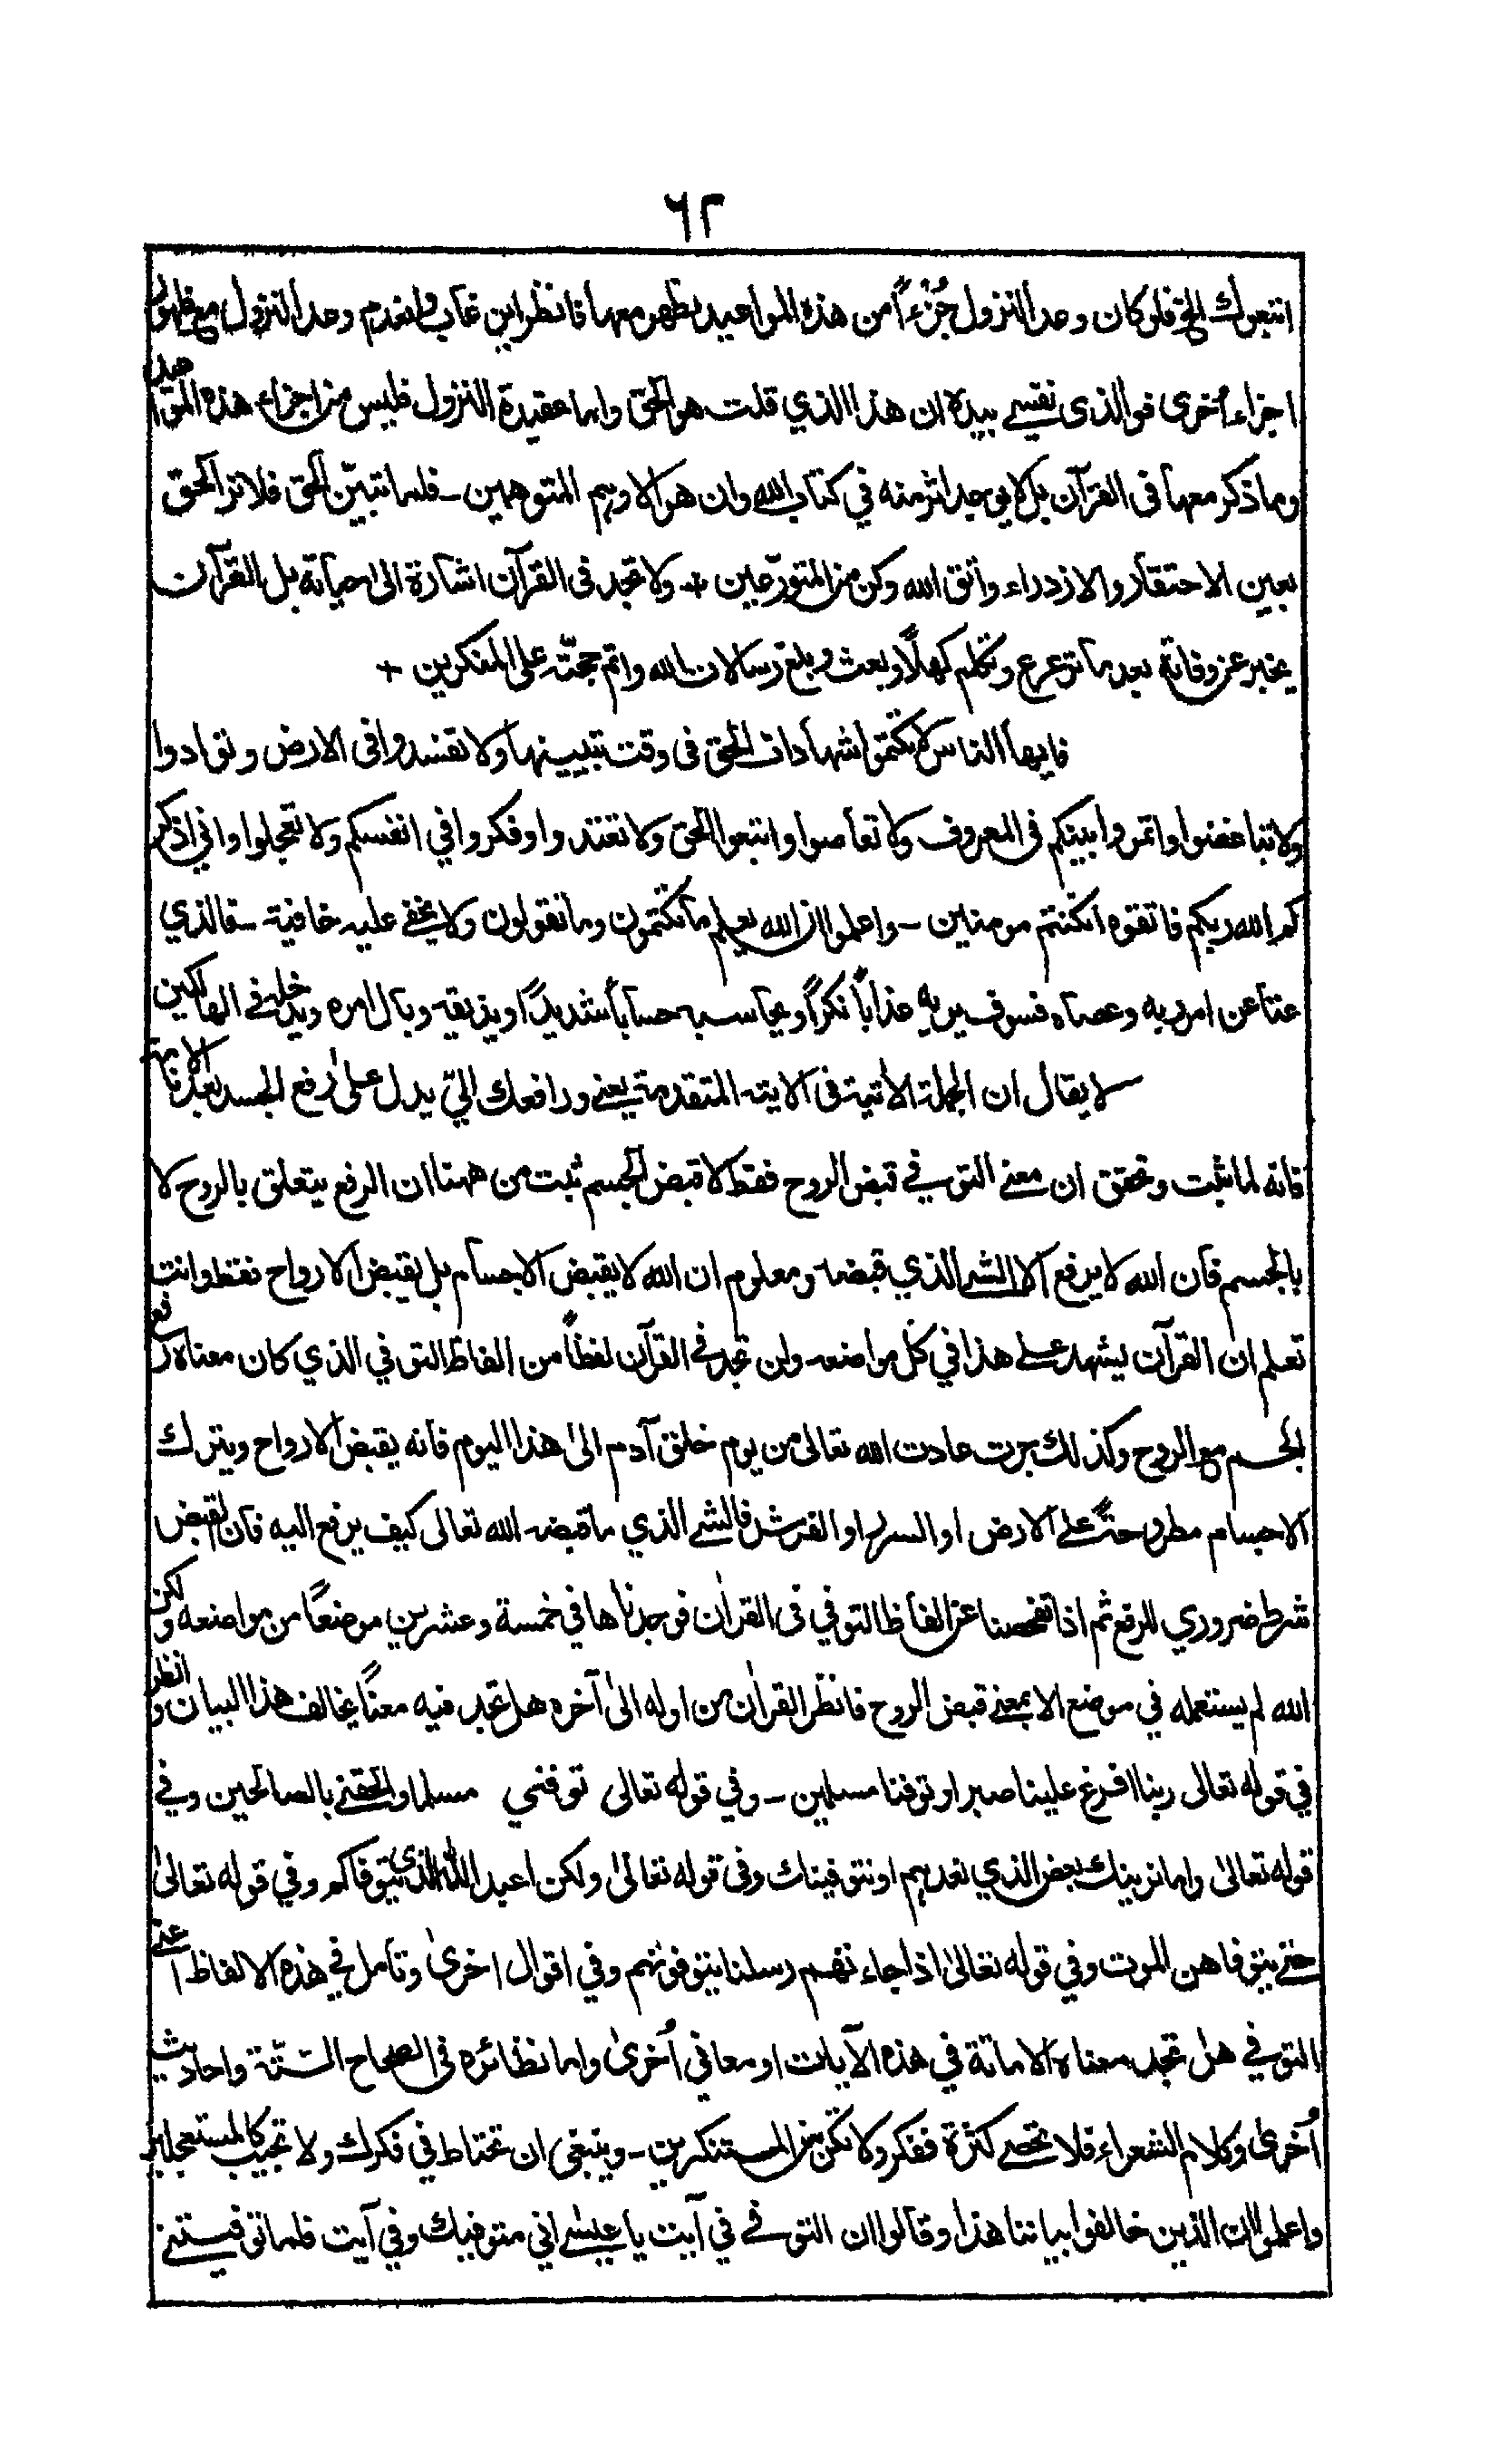 ٦٢
اتبعوك الخ فلو كان وعد النزول جُزءًا من هذه المواعيد لظهر معها فانظر اين غاب وانعدم وعد النزول مع ظهور
اجزاء أخرى فوالذى نفسي بيده ان هذا الذي قلت هو الحق واما عقيدة النزول فليس من اجزاء هذه المواعيد
وما ذكر معها فى القرآن بل لا يوجد اثر منه في كتاب الله وان هو الا وهم المتوهمين - فلما تبيّن الحق فلا تر الحق
بعين الاحتقار والازدراء واتق الله وكن من المتورّعين + ولا تجد فى القرآن اشارة الى حياته بل القرآن
يخبر عن وفاته بعد ما ترعرع وتكلم كهلًا وبعث وبلغ رسالات الله واتم حجته على المنكرين +
فايها الناس لا تكتموا شهادات الحق فى وقت تبيينها ولا تفسدوا فى الارض وتوادوا
ولا تباغضوا واتمروا بينكم فى المعروف ولا تعاصوا واتبعوا الحق ولا تعتدوا وفكروا في انفسكم ولا تعجلوا واني اذكر
كم الله ربكم فاتقوه ان كنتم مومنين - واعلموا ان الله يعلم ما تكتمون وما تقولون ولا يخفى عليه خافية - فالذي
عتا عن امر ربه وعصاه فسوف يريه عذابًا نكرًا ويحاسبه حسابًا شديدًا ويذيقه وبال امره ويدخله في الهالكين
لا يقال ان الجملة الآتية فى الاية المتقدمة يعنى ورافعك اليّ يدل على رفع الجسد بعد الاماتة
فانه لما ثبت وتحقق ان معنى التوفي قبض الروح فقط لا قبض الجسم ثبت من ههنا ان الرفع يتعلق بالروح لا
بالجسم فان الله لا يرفع الا الشي الذي قبضه ومعلوم ان الله لا يقبض الاجسام بل يقبض الارواح فقط وانت
تعلم ان القرآن يشهد على هذا في كل مواضعه ولن تجد في القرآن لفظًا من الفاظ التوفي الذي كان معناه رفع
الجسم مع الروح وكذلك جرت عادت الله تعالى من يوم خلق آدم الى هذا اليوم فانه يقبض الارواح ويترك
الاجسام مطروحة على الارض او السرر او الفرش فالشي الذي ما قبضه الله تعالى كيف يرفع اليه فان القبض
شرط ضروري للرفع ثم اذا تفحصنا عن الفاظ التوفي فى القران فوجدناها في خمسة وعشرين موضعًا من مواضعه ولكن
الله لم يستعمله في موضع الا بمعنى قبض الروح فانظر القران من اوله الى آخره هل تجد فيه معنًا يخالف هذا البيان وانظر
في قوله تعالى ربنا افرغ علينا صبرا وتوفنا مسلمين - وفي قوله تعالى توفني مسلما والحقني بالصالحين وفي
قوله تعالى واما نرينك بعض الذي نعدهم او نتوفينك وفى قوله تعالى ولكن اعبد الله الذى يتوفاكم وفي قوله تعالى
حتى يتوفاهن الموت وفي قوله تعالى اذا جاءتهم رسلنا يتوفونهم وفي اقوال اخرى وتأمل في هذه الالفاظ اعنى
التوفي هل تجد معناه الاماتة في هذه الآيات او معاني أخرى واما نظائره فى الصحاح الستّة واحاديث
أخرى وكلام الشعراء فلا تحصى كثرة ففكر ولا تكن من المستنكرين - وينبغي ان تحتاط في فكرك ولا تجيب كالمستعجلين
واعلموا ان الذين خالفوا بياننا هذا وقالوا ان التوفي في آيت يا عيسى اني متوفيك وفي آيت فلما توفيتني